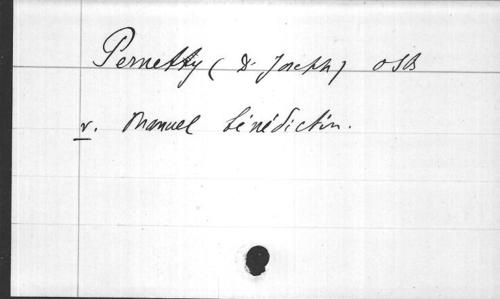 Pernetty (D. Joseph) OSB
v. Manuel bénédictin.